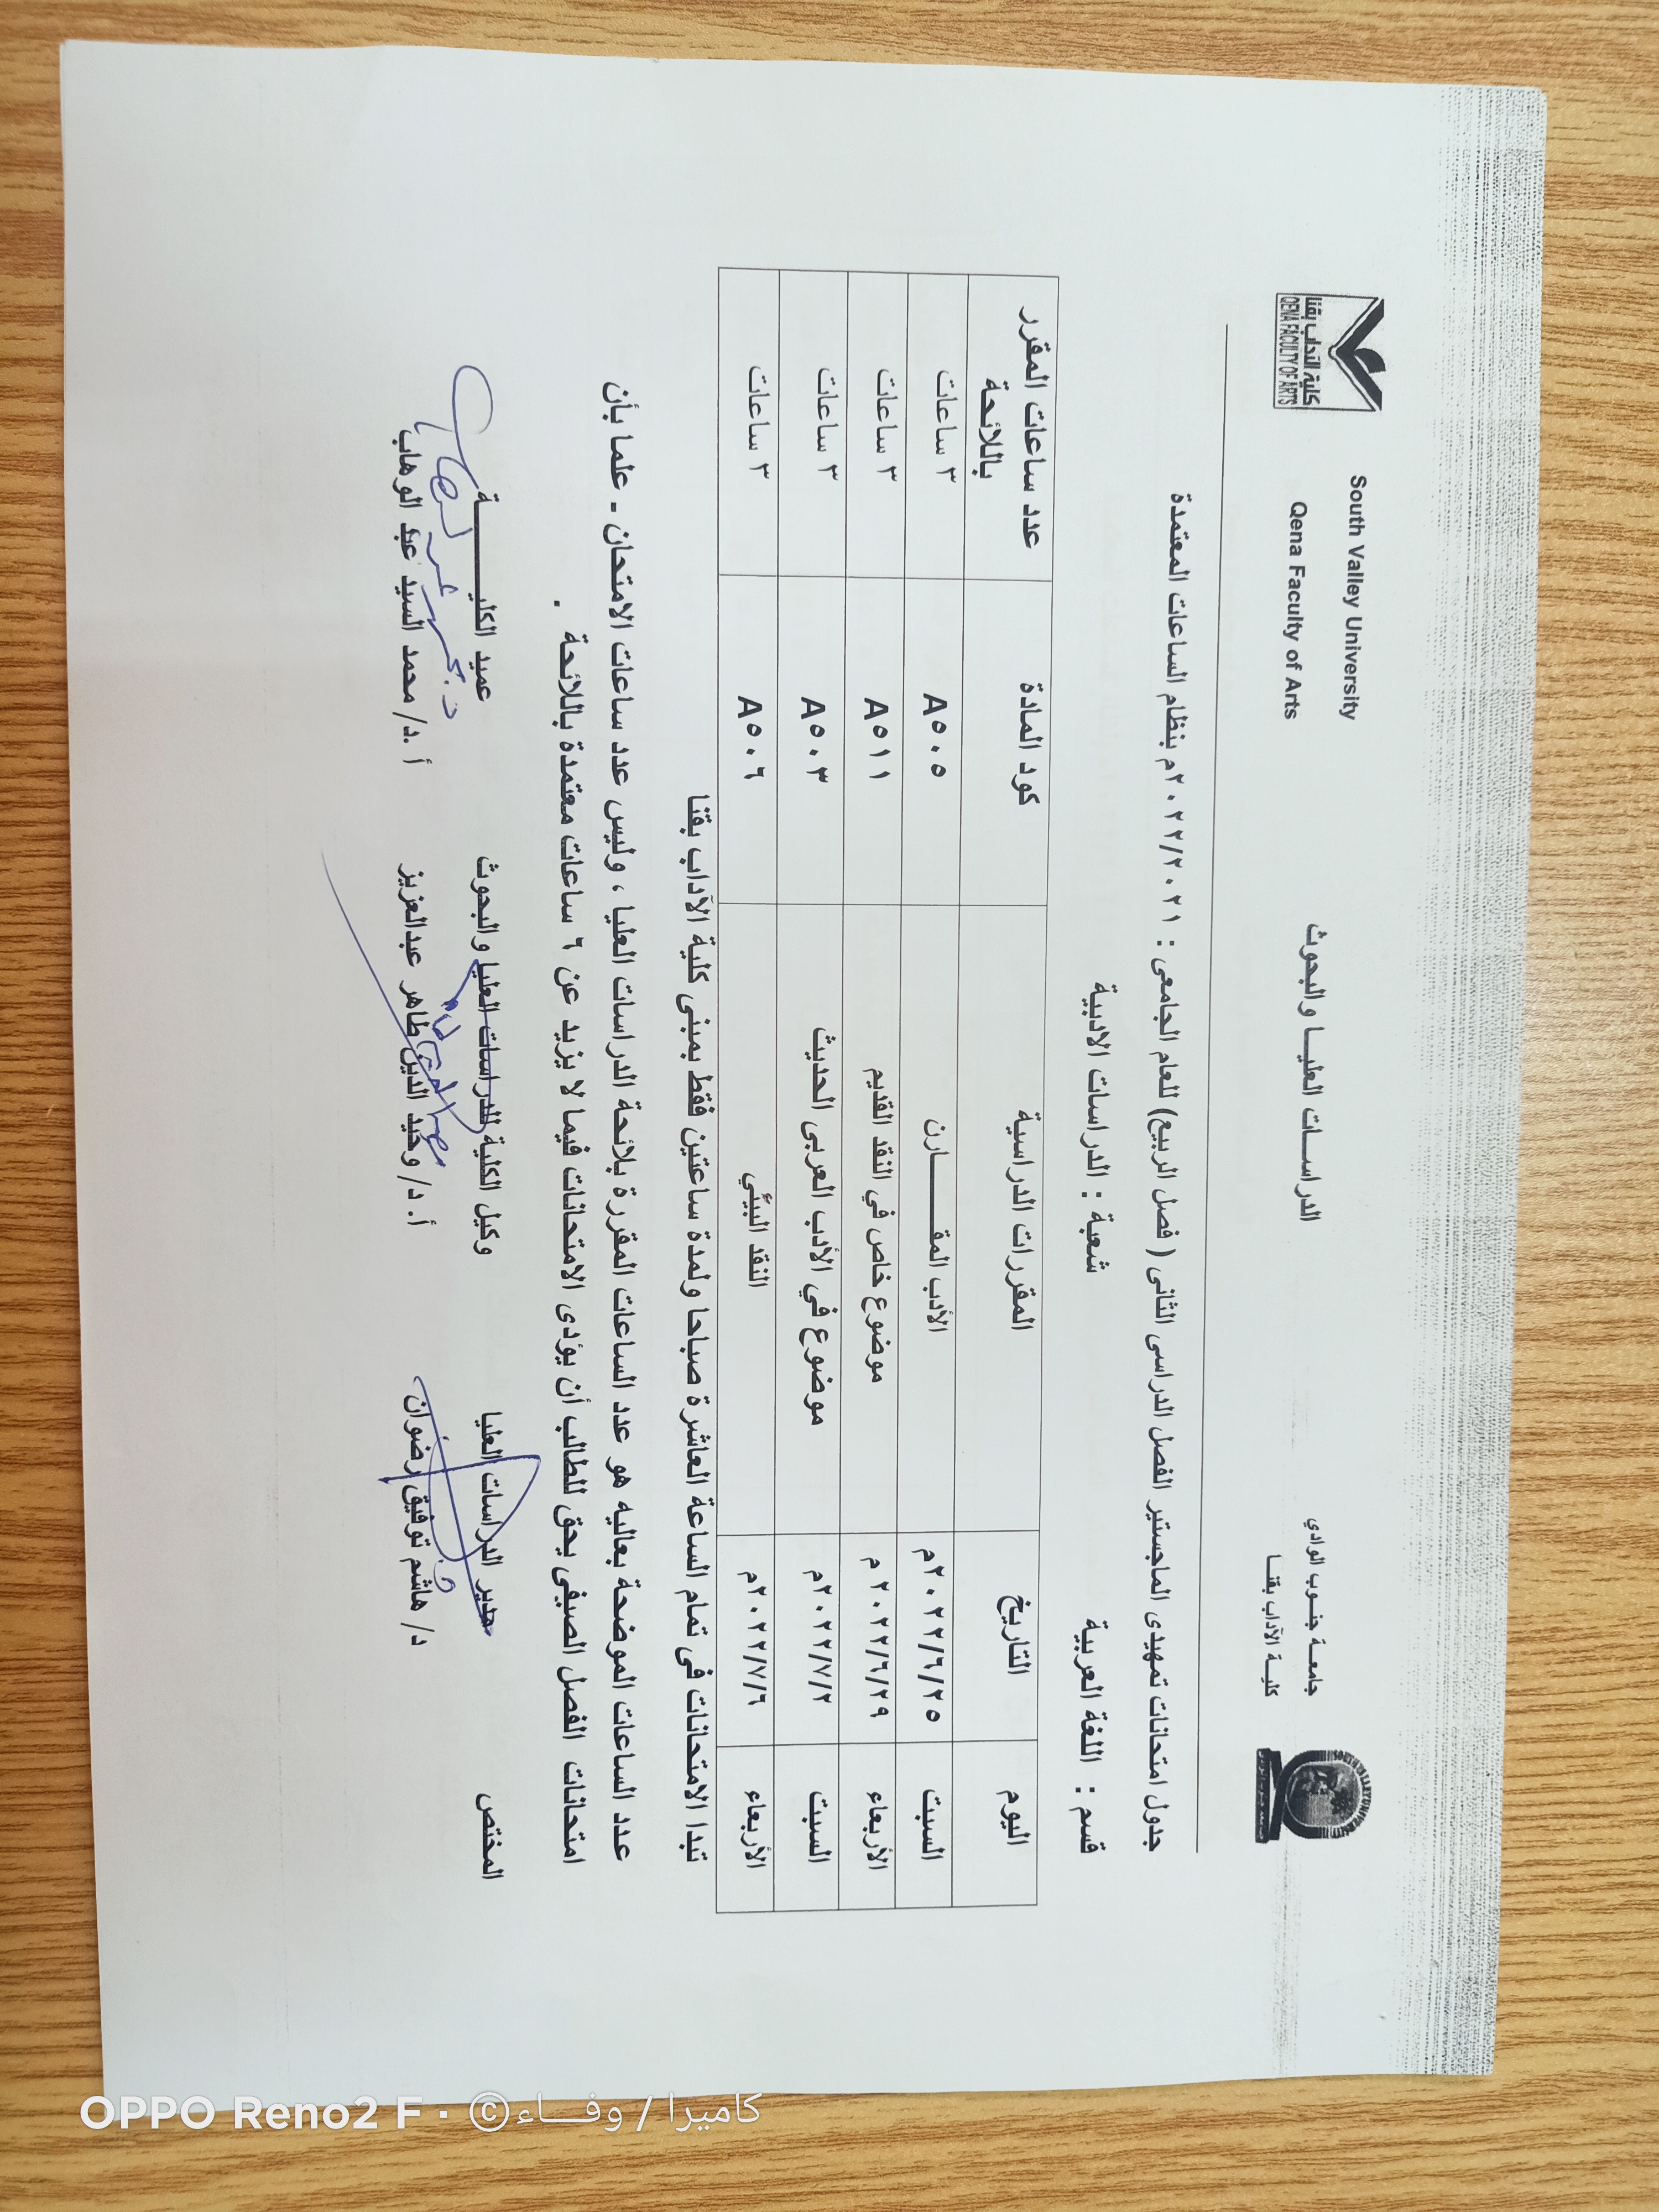 جامعة جنوب الوادي
كلية الآداب بقنا
الدراسات العليا والبحوث
South Valley University
Qena Faculty of Arts
كلية الآداب بقنا
QENA FACULTY OF ARTS
جدول امتحانات تمهيدى الماجستير الفصل الدراسى الثانى ( فصل الربيع) للعام الجامعى : ٢٠٢٢/٢٠٢١م بنظام الساعات المعتمدة
قسم : اللغة العربية شعبة : الدراسات الادبية
اليوم التاريخ المقررات الدراسية كود المادة عدد ساعات المقرر باللائحة
السبت ٢٠٢٢/٦/٢٥م الأدب المقارن A٥٠٥ ٣ ساعات
الأربعاء ٢٠٢٢/٦/٢٩ م موضوع خاص في النقد القديم A٥١١ ٣ ساعات
السبت ٢٠٢٢/٧/٢م موضوع في الأدب العربى الحديث A٥٠٣ ٣ ساعات
الأربعاء ٢٠٢٢/٧/٦م النقد البيئي A٥٠٦ ٣ ساعات
تبدا الامتحانات فى تمام الساعة العاشرة صباحا ولمدة ساعتين فقط بمبنى كلية الآداب بقنا
عدد الساعات الموضحة بعاليه هو عدد الساعات المقررة بلائحة الدراسات العليا ، وليس عدد ساعات الامتحان - علما بأن
امتحانات الفصل الصيفى يحق للطالب أن يؤدى الامتحانات فيما لا يزيد عن ٦ ساعات معتمدة باللائحة .
المختص مدير الدراسات العليا وكيل الكلية للدراسات العليا والبحوث عميد الكلية
د/ هاشم توفيق رضوان أ.د/ وحيد الدين طاهر عبدالعزيز أ.د/ محمد السيد عبد الوهاب
OPPO Reno2 F · © كاميرا / وفاء